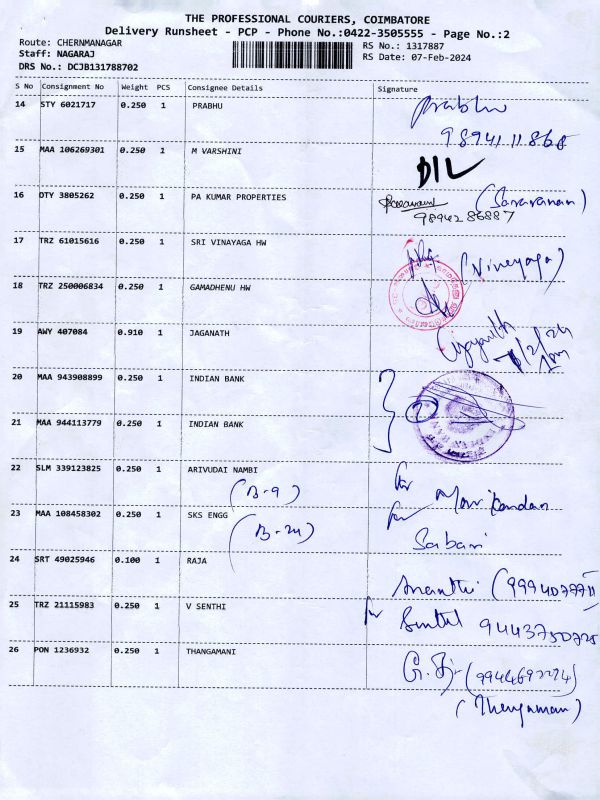 THE PROFESSIONAL COURIERS, COIMBATORE
Delivery Runsheet - PCP - Phone No.:0422-3505555 - Page No.:2
Route: CHERNMANAGAR
Staff: NAGARAJ
DRS No.: DCJB131788702
RS No.: 1317887
RS Date: 07-Feb-2024
S No Consignment No Weight PCS Consignee Details Signature
14 STY 6021717 0.250 1 PRABHU Prabhu
9894111868
15 MAA 106269301 0.250 1 M VARSHINI D/L
16 DTY 3805262 0.250 1 PA KUMAR PROPERTIES (Saravanan)
9894286887
17 TRZ 61015616 0.250 1 SRI VINAYAGA HW (Vinayaga)
18 TRZ 250006834 0.250 1 GAMADHENU HW
19 AWY 407084 0.910 1 JAGANATH
20 MAA 943908899 0.250 1 INDIAN BANK
21 MAA 944113779 0.250 1 INDIAN BANK
22 SLM 339123825 0.250 1 ARIVUDAI NAMBI for
(B-9) Manikandan
23 MAA 108458302 0.250 1 SKS ENGG for
(B-24) Sabari
24 SRT 49025946 0.100 1 RAJA Ananthi
25 TRZ 21115983 0.250 1 V SENTHI for Senthil 9443750728
26 PON 1236932 0.250 1 THANGAMANI
(Thangamani)